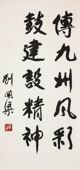 傳九州風彩
鼓建設精神
劉開渠